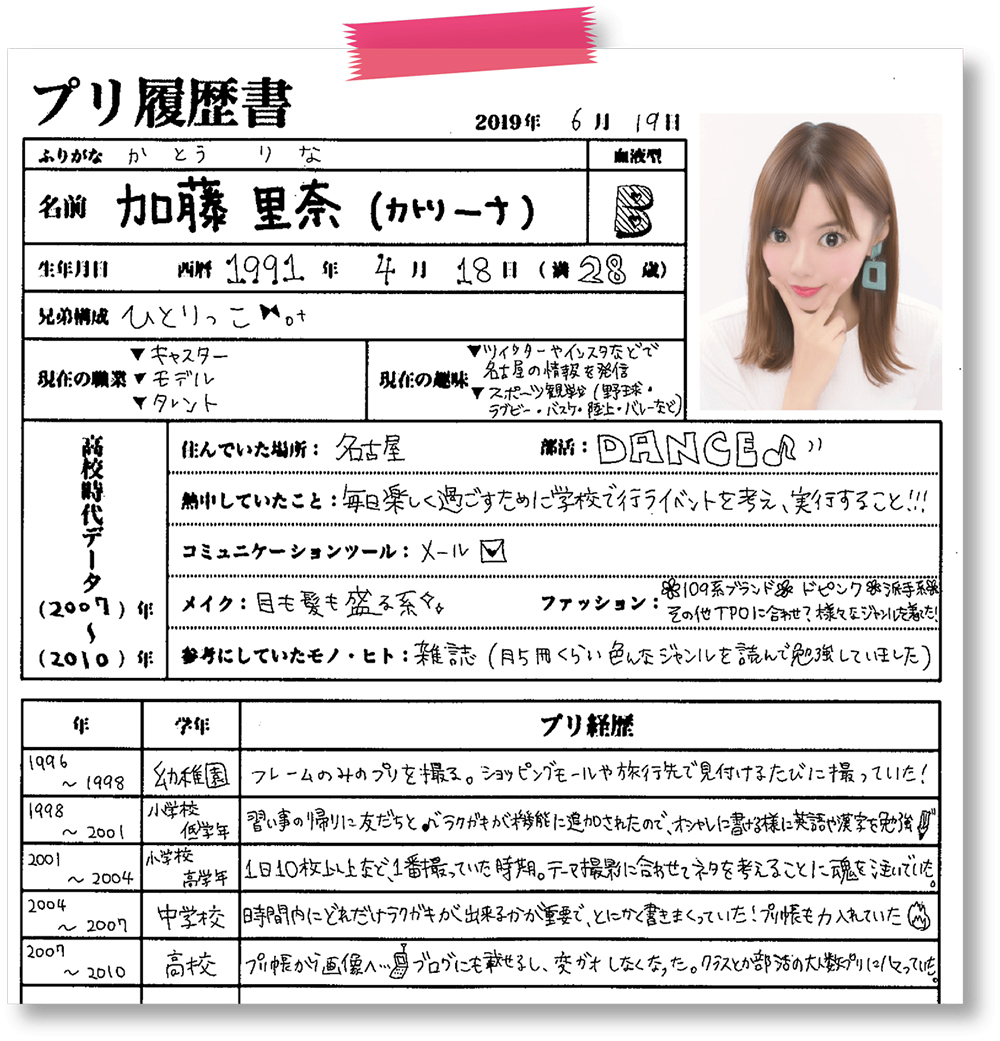 プリ履歴書
2019年 6月 19日
ふりがな かとう りな
血液型
名前 加藤 里奈 (カトリーナ)
B
生年月日 西暦 1991年 4月 18日 (満 28 歳)
兄弟構成 ひとりっこ
現在の職業
▼キャスター
▼モデル
▼タレント
現在の趣味
▼ツイッターやインスタなどで
名古屋の情報を発信
▼スポーツ観戦(野球・
ラグビー・バスケ・陸上・バレーなど)
高校時代データ
(2007)年
~
(2010)年
住んでいた場所: 名古屋 部活: DANCE♪
熱中していたこと:毎日楽しく過ごすために学校で行うイベントを考え、実行すること!!!
コミュニケーションツール: メール
メイク:目も髪も盛る系 ファッション:
109系ブランド ドピンク 派手系
その他TPOに合わせ?様々なジャンルを着てた!
参考にしていたモノ・ヒト:雑誌(月5冊くらい色んなジャンルを読んで勉強していました)
年 学年 プリ経歴
1996
~1998 幼稚園 フレームのみのプリを撮る。ショッピングモールや旅行先で見付けるたびに撮っていた!
1998
~2001 小学校
低学年 習い事の帰りに友だちと♪ラクガキが機能に追加されたので、オシャレに書ける様に英語や漢字を勉強
2001
~2004 小学校
高学年 1日10枚以上など、1番撮っていた時期。テーマ撮影に合わせてネタを考えることに魂を注いでいた。
2004
~2007 中学校 時間内にどれだけラクガキが出来るかが重要で、とにかく書きまくっていた!プリ帳も力入れていた
2007
~2010 高校 プリ帳から画像へ…ブログにも載せるし、変ガオしなくなった。クラスとか部活の大人数プリにハマっていた。